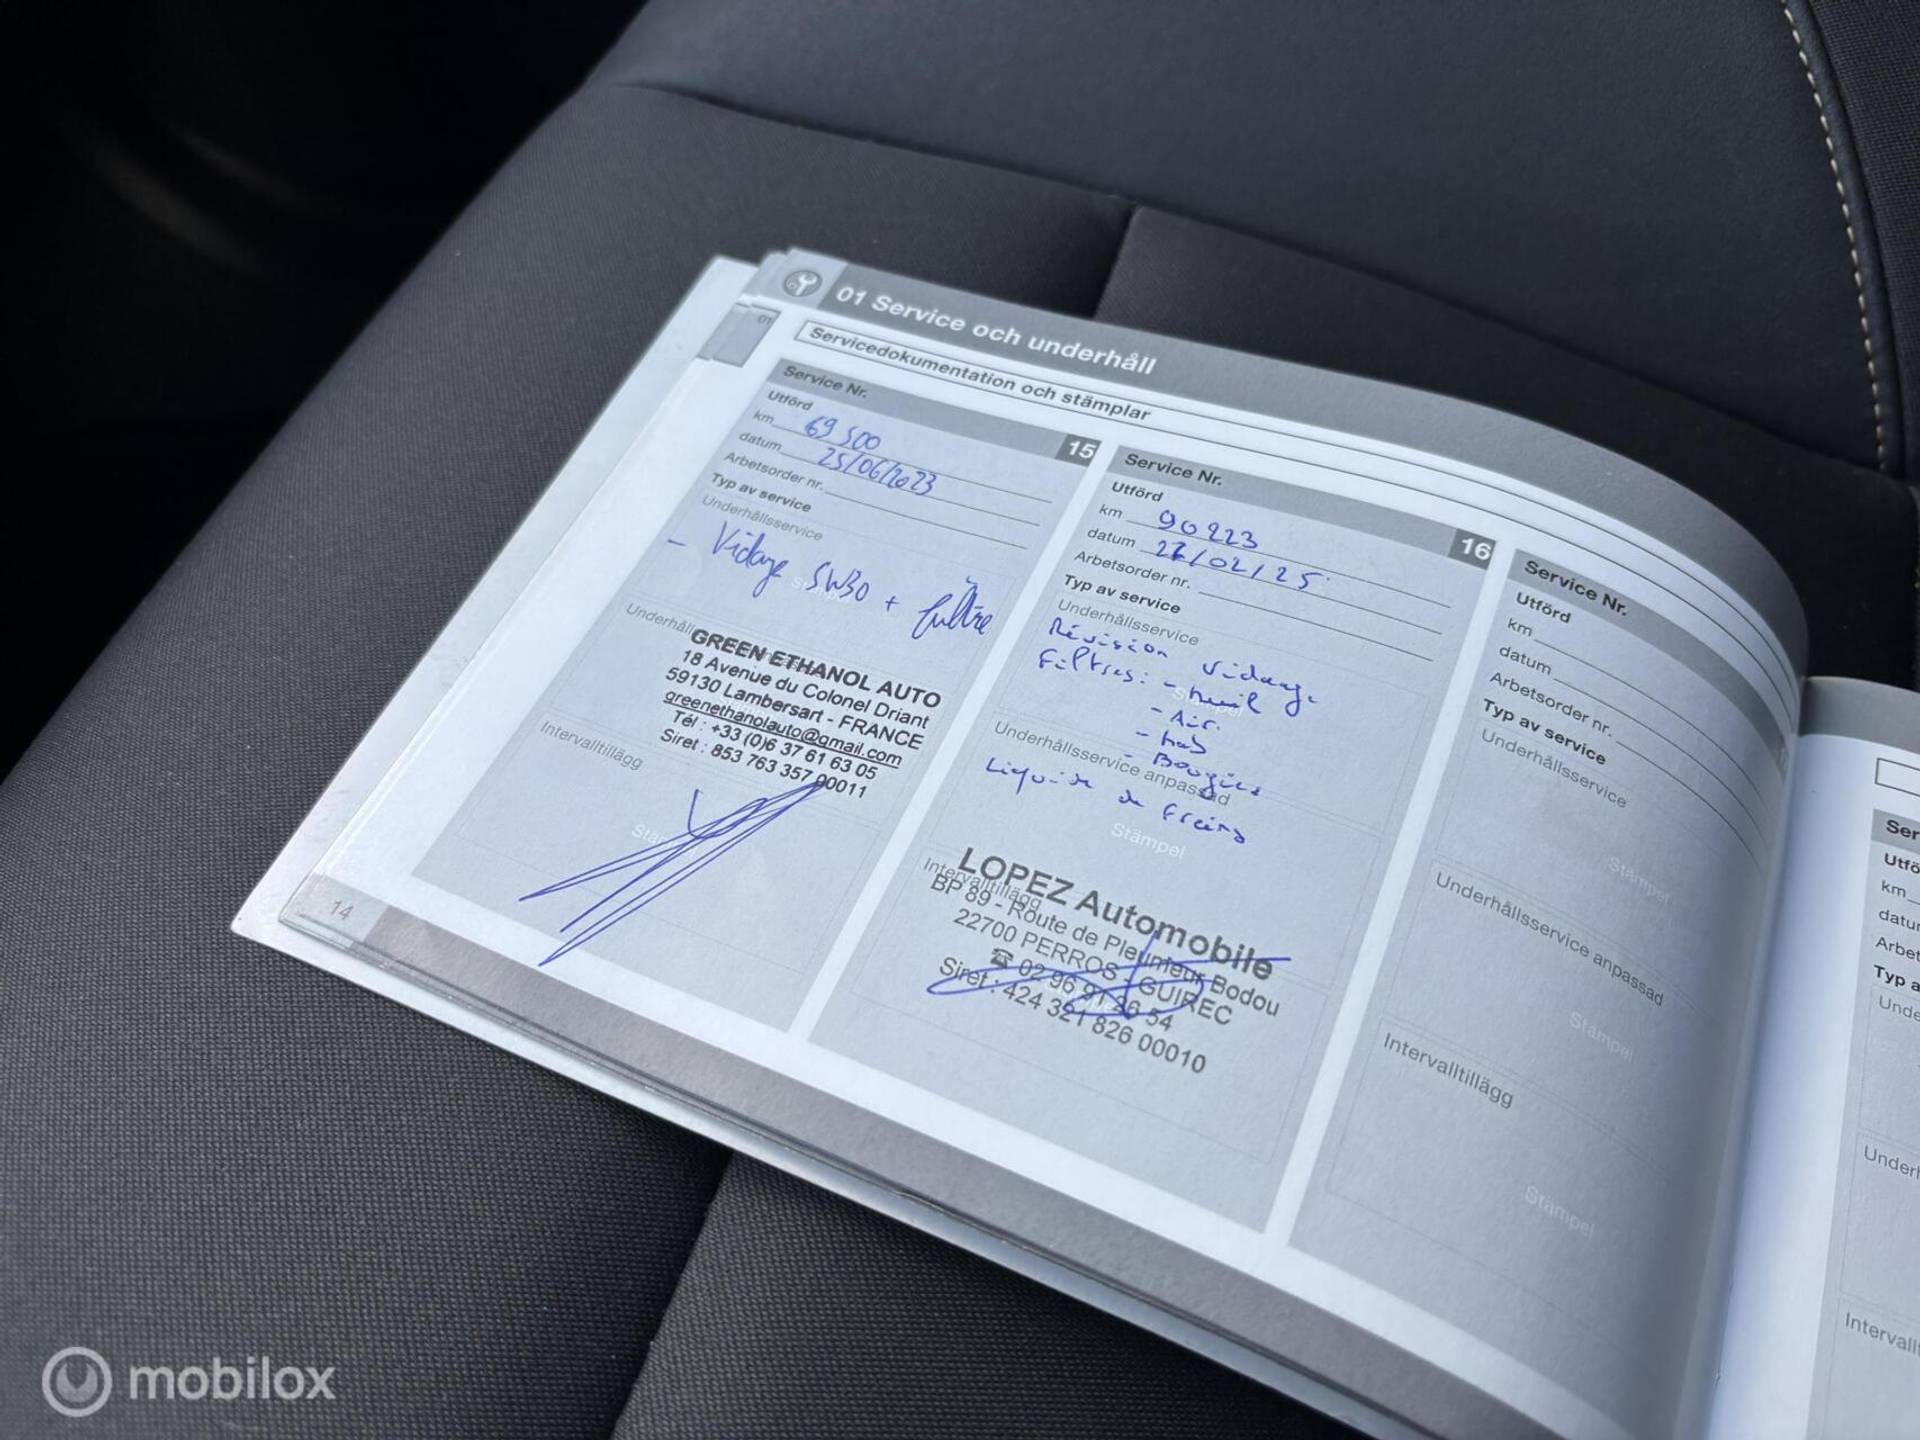 01 Service och underhåll
01
Servicedokumentation och stämplar
Service Nr.
15
Utförd
km 69 500
datum 25/06/2023
Arbetsorder nr.
Typ av service
Underhållsservice
- Vidage 5W30 + filtre
Underhåll
GREEN ETHANOL AUTO
18 Avenue du Colonel Driant
59130 Lambersart - FRANCE
greenethanolauto@gmail.com
Tél : +33 (0)6 37 61 63 05
Siret : 853 763 357 00011
Intervalltillägg
Stämpel
14
Service Nr.
16
Utförd
km 90 223
datum /02/25
Arbetsorder nr.
Typ av service
Underhållsservice
Révision vidange
Filtres: - huil
- Air.
- hab
- Bougies
Underhållsservice anpassad
Liquide de Freins
Stämpel
Intervalltillägg
LOPEZ Automobile
BP 89 - Route de Pleumeur Bodou
22700 PERROS - GUIREC
☎ 02 96 91 26 54
Siret : 424 321 826 00010
Service Nr.
Utförd
km
datum
Arbetsorder nr.
Typ av service
Underhållsservice
Stämpel
Underhållsservice anpassad
Stämpel
Intervalltillägg
Stämpel
Ser
Utfö
km
datu
Arbe
Typ a
Unde
Underh
Intervall
mobilox